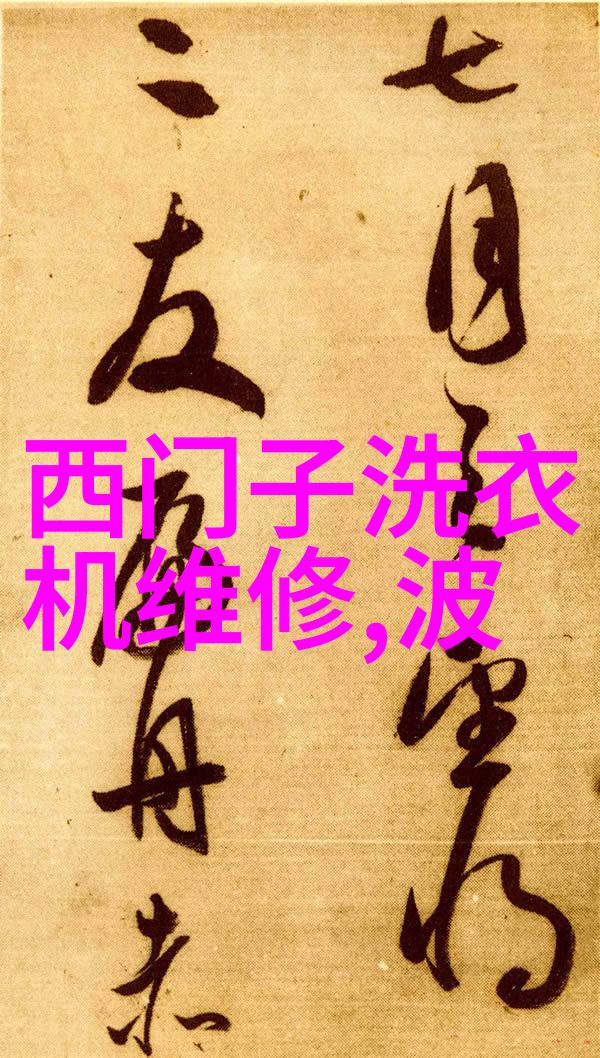 西门子洗衣
机维修,波
七月望将
二友舟赤